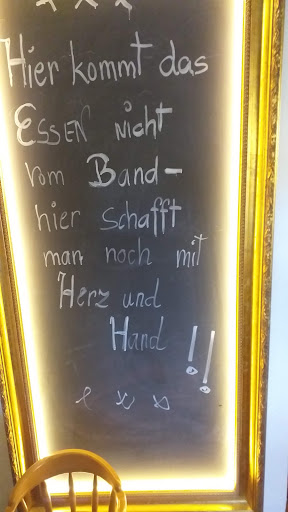 Hier kommt das
ESSEN nicht
vom Band-
hier schafft
man noch mit
Herz und
Hand !!